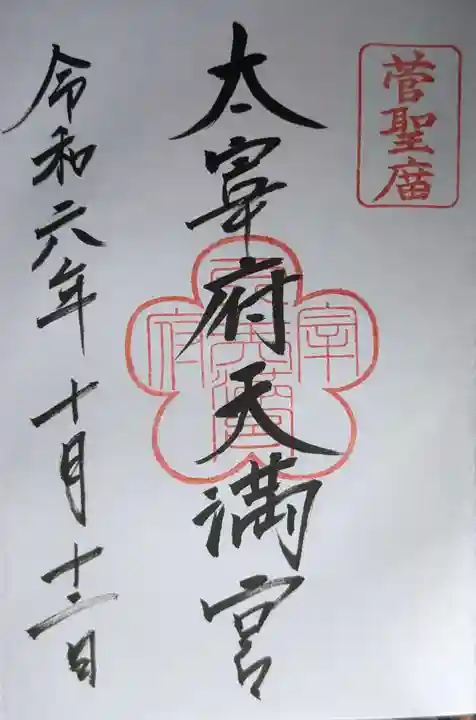 菅聖庿
太宰府天満宮
令和六年十月十二日
宰
府